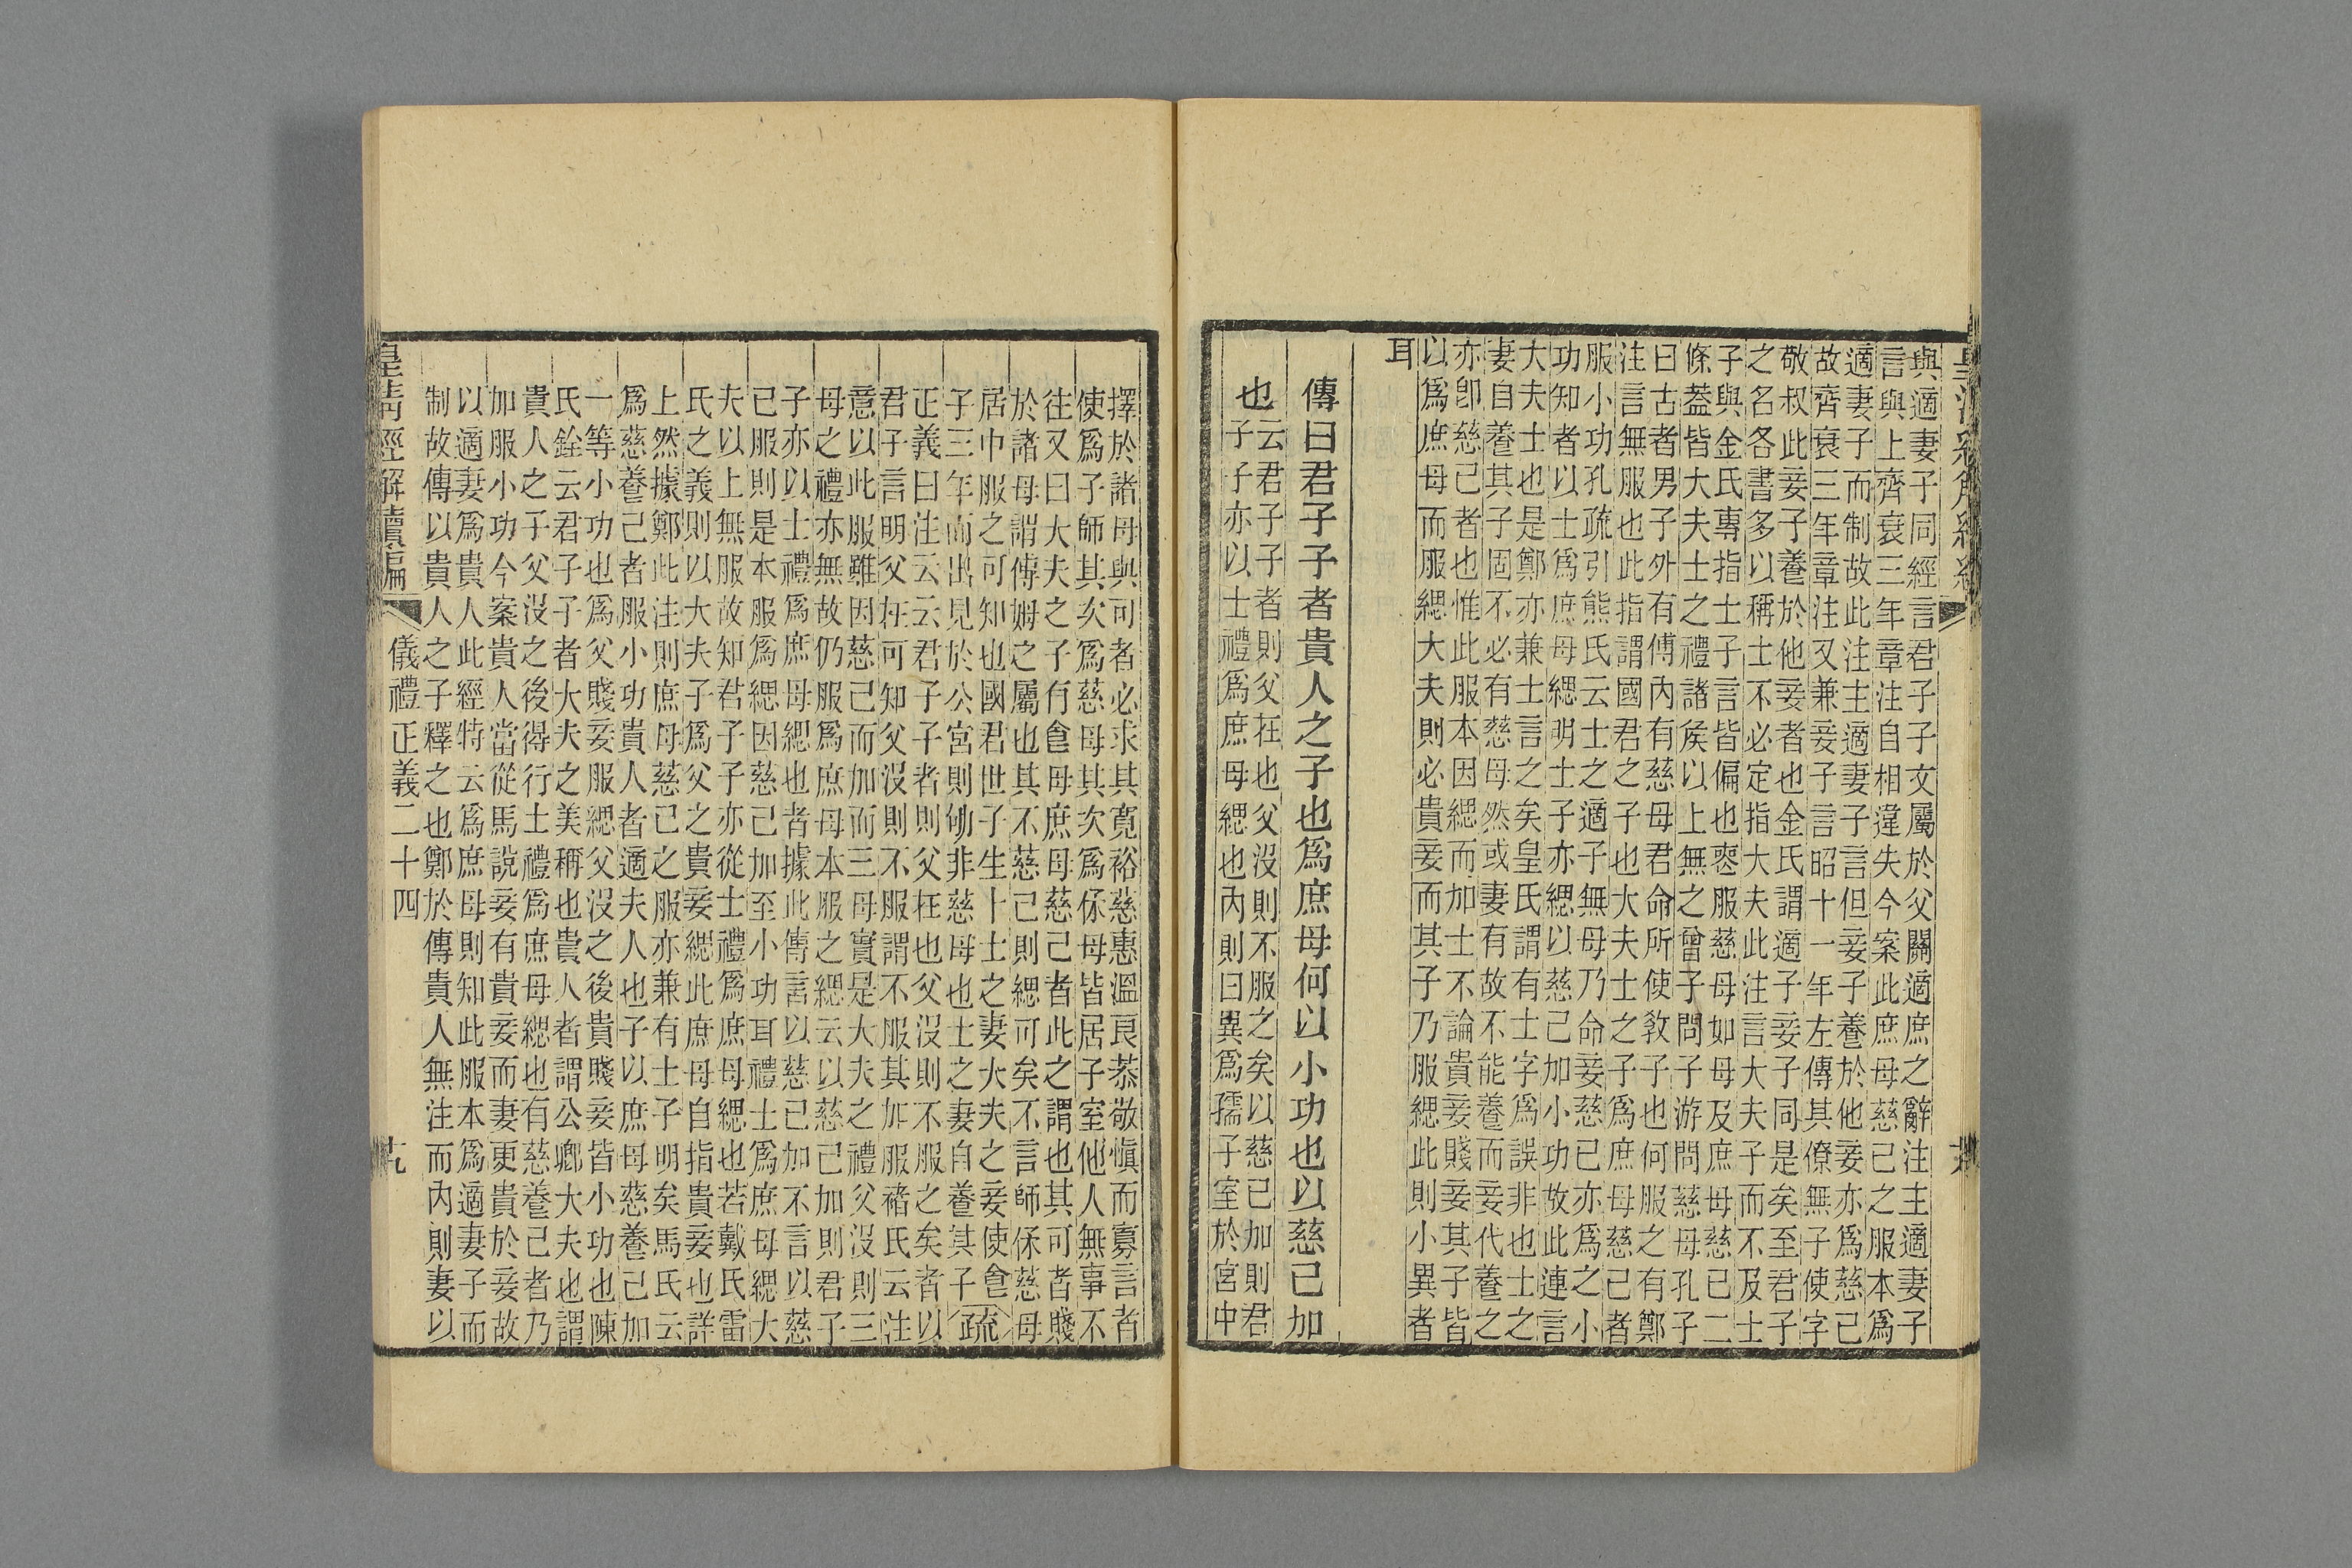 與適妻子同經言君子子文屬於父關適庶之辭注主適妻子
言與上齊衰三年章注自相違失今案此庶母慈己之服本爲
適妻子而制故此注主適妻子言但妾子養於他妾亦爲慈己
故齊衰三年章注又兼妾子言昭十一年左傳其僚無子使字
敬叔此妾子養於他妾者也金氏謂適子妾子同是矣至君子
之名各書多以稱士不必定指大夫此注言大夫子而不及士
子與金氏專指士子言皆偏也喪服慈母如母及庶母慈己二
條葢皆大夫士之禮諸矦以上無之曾子問子游問慈母孔子
曰古者男子外有傅內有慈母君命所使敎子也何服之有鄭
注言無服也此指謂國君之子也大夫士之子爲庶母慈己者
服小功孔疏引熊氏云士之適子無母乃命妾慈己亦爲之小
功知者以士爲庶母緦明士子亦緦以慈己加小功故此連言
大夫士也是鄭亦兼士言之矣皇氏謂有士字爲誤非也士之
妻自養其子固不必有慈母然或妻有故不能養而妾代養之
亦卽慈己者也惟此服本因緦而加士不論貴妾賤妾其子皆
以爲庶母而服緦大夫則必貴妾而其子乃服緦此則小異者
耳
傳曰君子子者貴人之子也爲庶母何以小功也以慈己加
也
云君子子者則父在也父沒則不服之矣以慈己加則君
子子亦以士禮爲庶母緦也內則曰異爲孺子室於宮中
擇於諸母與可者必求其寬裕慈惠溫良恭敬愼而寡言者
使爲子師其次爲慈母其次爲保母皆居子室他人無事不
往又曰大夫之子有食母庶母慈己者此之謂也其可者賤
於諸母謂傅姆之屬也其不慈己則緦可矣不言師保慈母
居中服之可知也國君世子生卜士之妻大夫之妾使食
子三年而出見於公宮則劬非慈母也士之妻自養其子疏
正義曰注云云君子子者則父在也父沒則不服之矣者以
君子言明父在可知父沒則不服謂不服其加服褚氏云注
意以此服雖因慈己而加而三母實是大夫之禮父沒則三
母之禮亦無故仍服爲庶母本服之緦云以慈己加則君子
子亦以士禮爲庶母緦也者據此傳言以慈己加不言以慈
己服則是本服爲緦因慈己加至小功耳禮士爲庶母緦大
夫以上無服故知君子子亦從士禮爲庶母緦也若戴氏雷
氏之義則以大夫子爲父之貴妾緦此庶母自指貴妾也詳
上然據鄭此注則庶母慈己之服亦兼有士子明矣馬氏云
爲慈養己者服小功貴人者適夫人也子以庶母慈養己加
一等小功也爲父賤妾服緦父沒之後貴賤妾皆小功也陳
氏銓云君子子者大夫之美稱也貴人者謂公卿大夫也謂
貴人之子父沒之後得行士禮爲庶母緦也有慈養己者乃
加服小功今案貴人當從馬說妾有貴妾而妻更貴於妾故
以適妻爲貴人此經特云爲庶母則知此服本爲適妻子而
制故傳以貴人之子釋之也鄭於傳貴人無注而內則妻以
皇淸經解續編
儀禮正義二十四